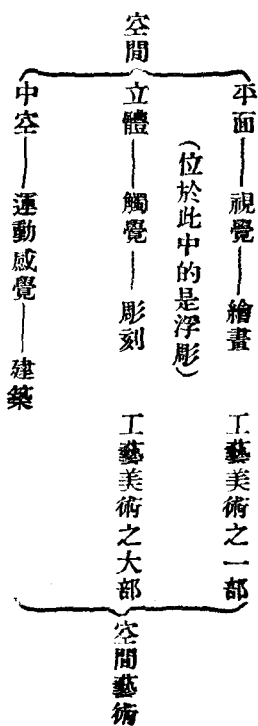 空間
平面——視覺——繪畫　工藝美術之一部
（位於此中的是浮彫）
立體——觸覺——彫刻　工藝美術之大部
中空——運動感覺——建築
空間藝術